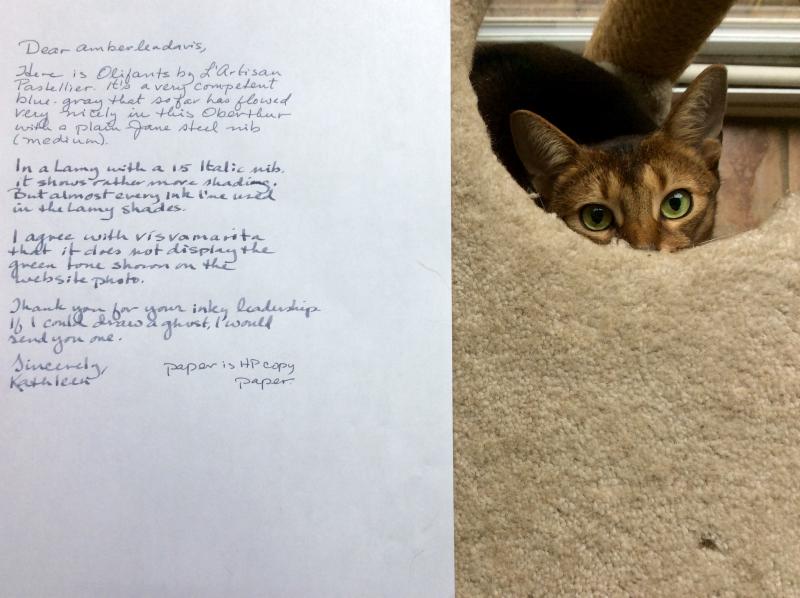 Dear amberleadavis,
Here is Olifants by L'Artisan
Pastellier. It's a very competent
blue-gray that so far has flowed
very nicely in this Oberthur
with a plain Jane steel nib
(medium).
In a Lamy with a 1.5 Italic nib,
it shows rather more shading.
But almost every ink I've used
in the Lamy shades.
I agree with visvamarita
that it does not display the
green tone shown on the
website photo.
Thank you for your inky leadership
If I could draw a ghost, I would
send you one.
Sincerely,
Kathleen
paper is HP copy
paper